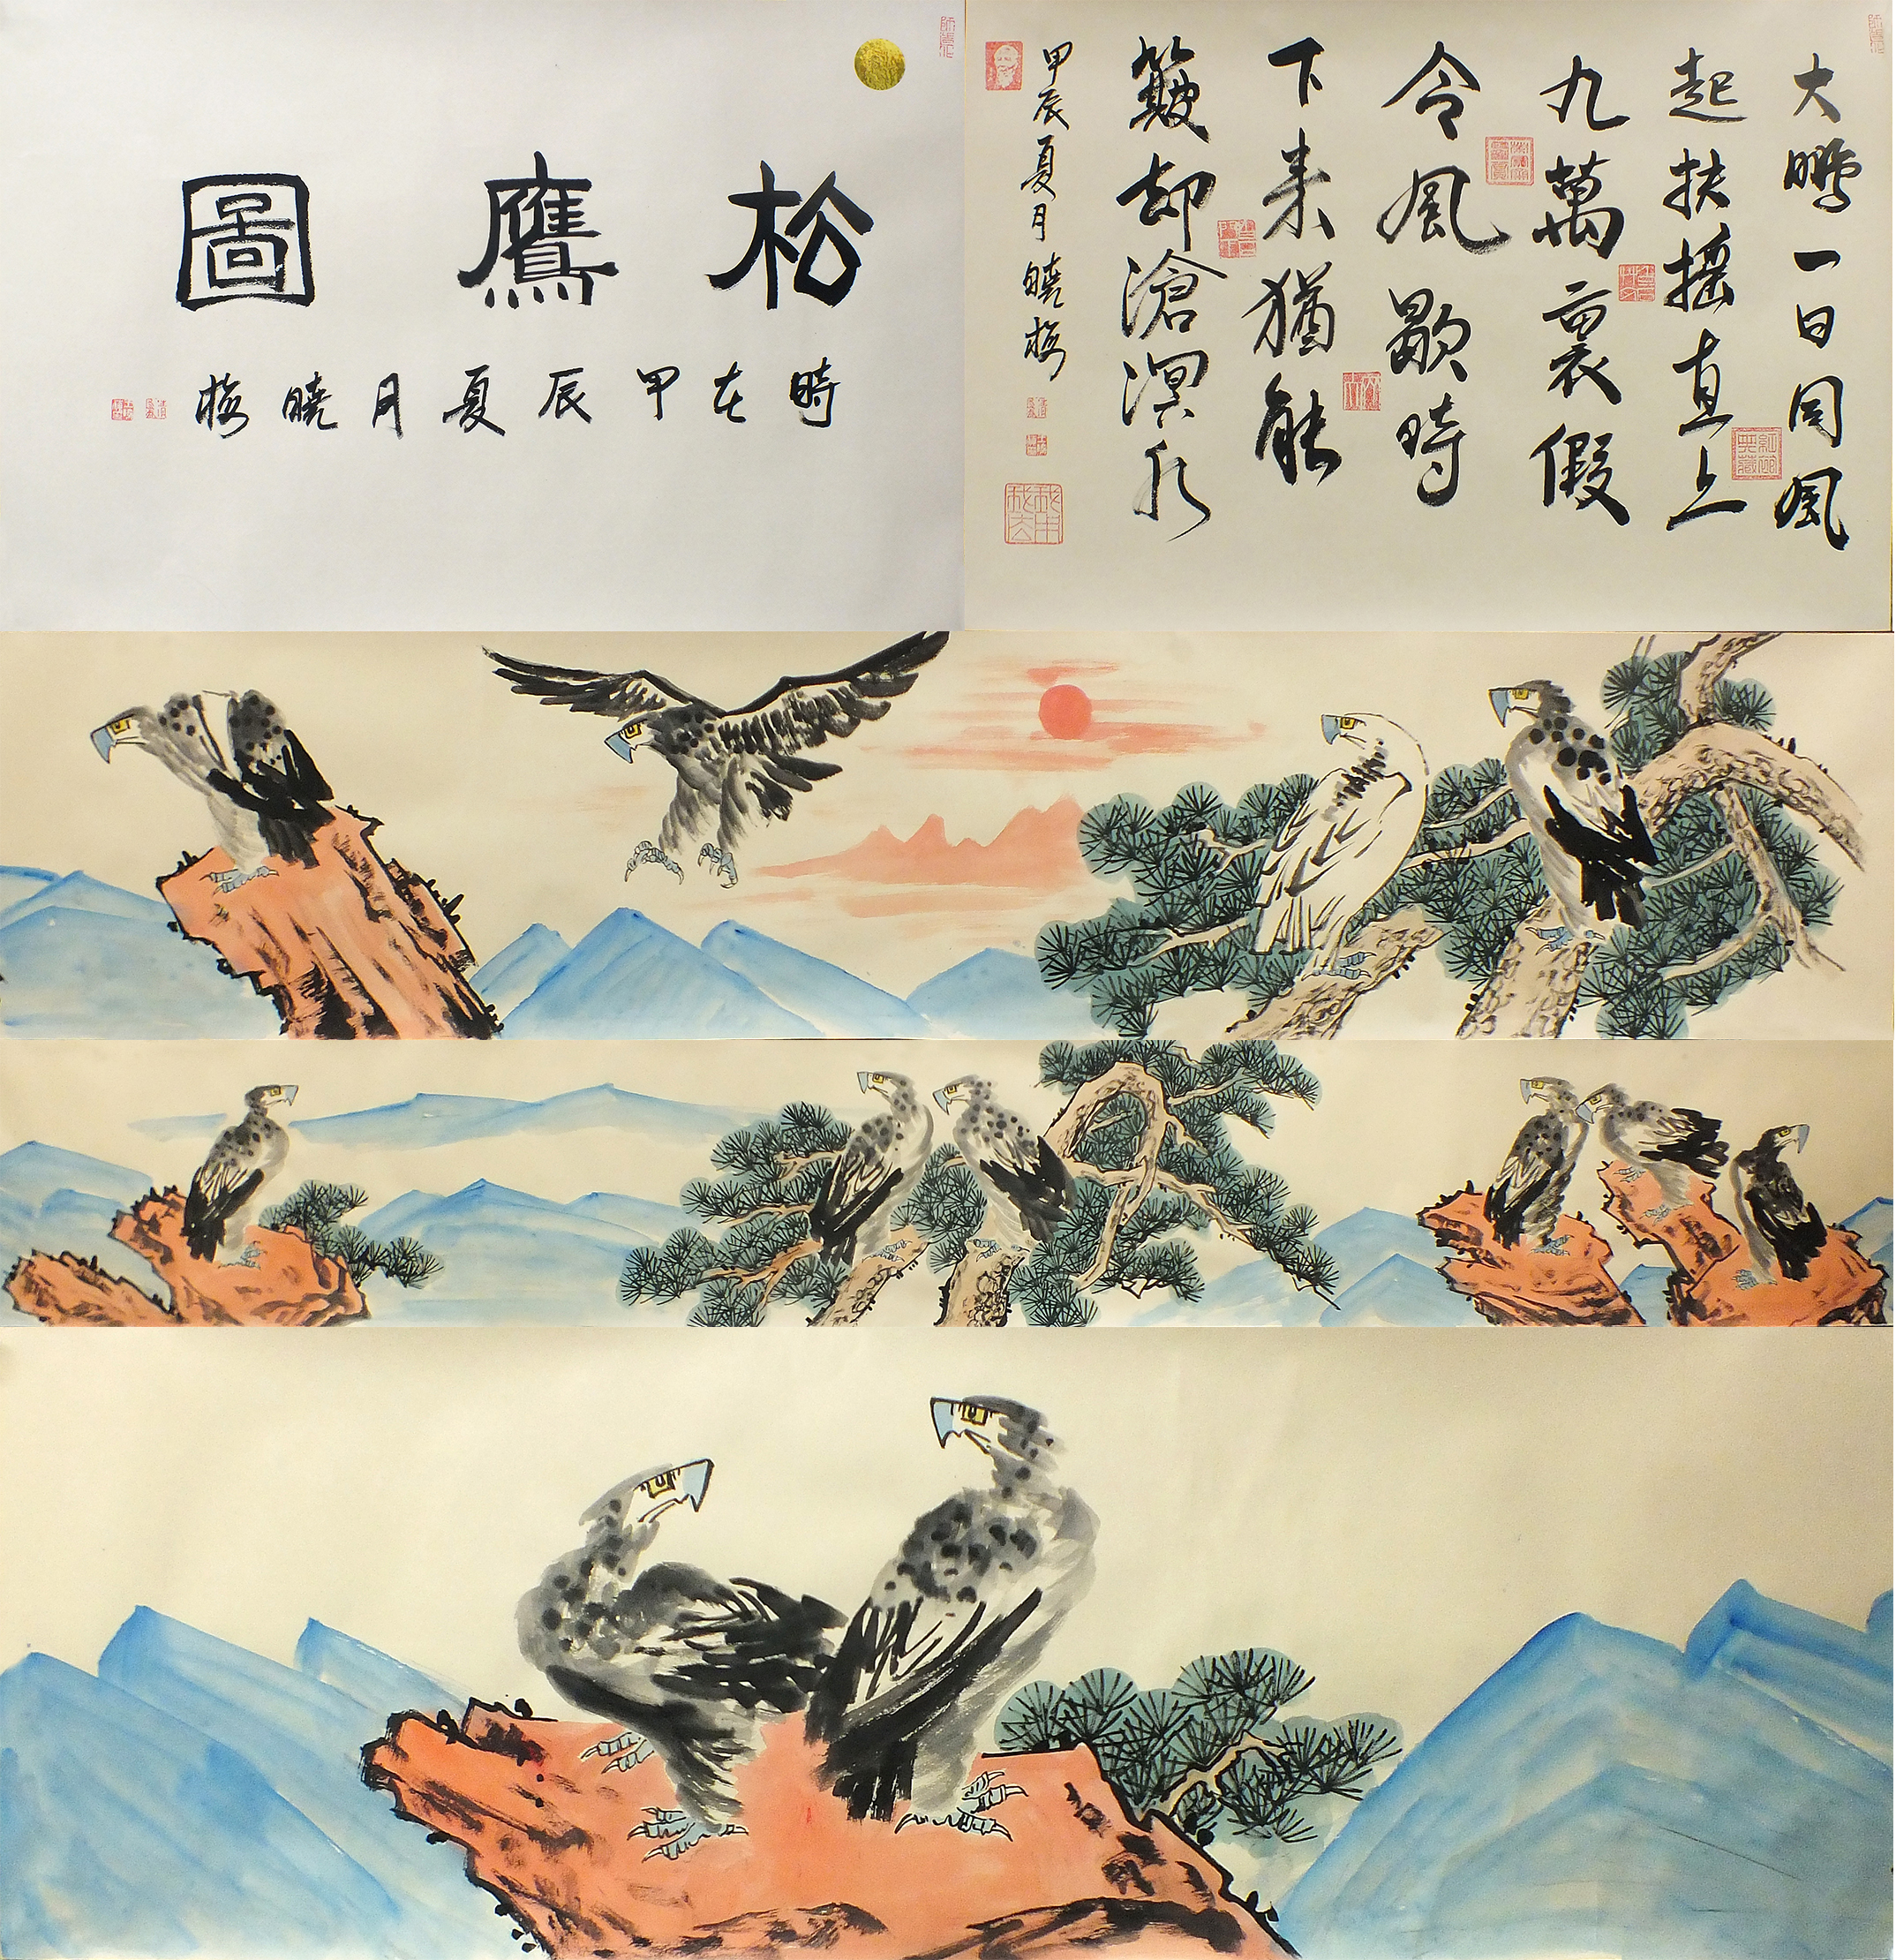 松鷹圖
時在甲辰夏月曉梅
大鵬一日同風
起扶搖直上
九萬裏假
令風歇時
下来猶能
簸却滄溟水
甲辰夏月曉梅